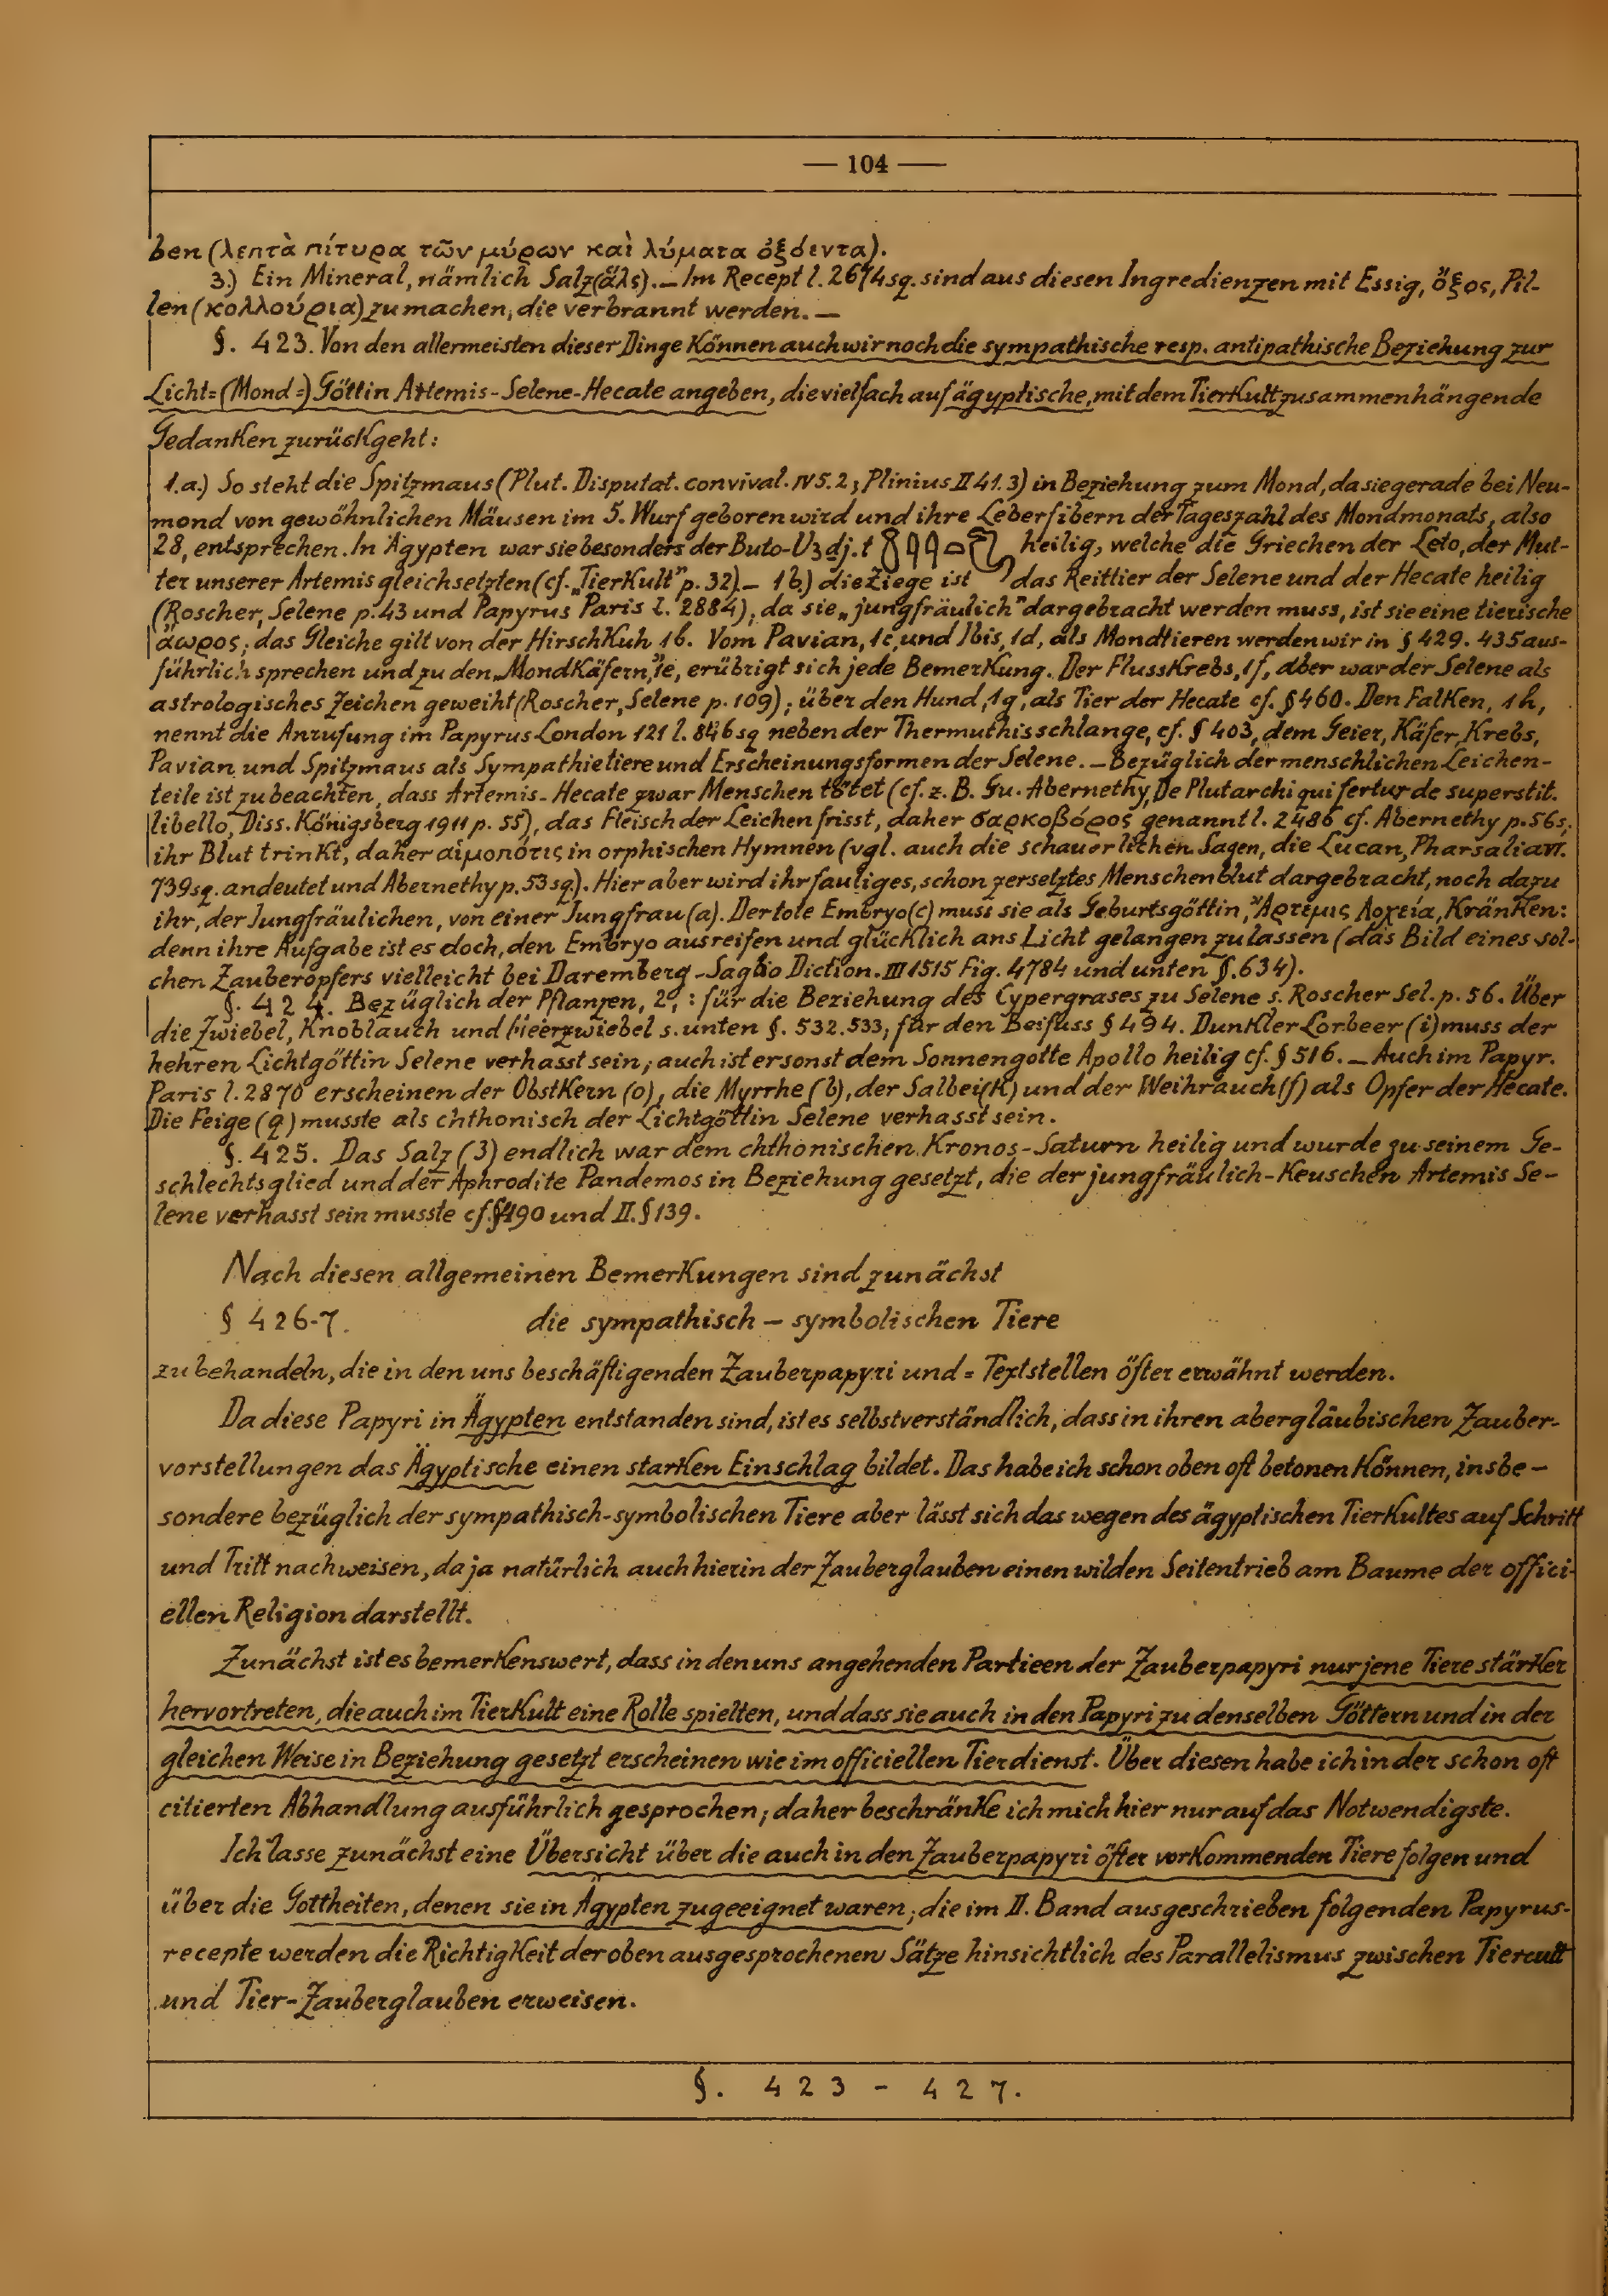 — 104 —
ben (λεπτὰ πίτυρα τῶν μύρων καὶ λύματα ὀξόεντα).
3.) Ein Mineral, nämlich Salz (ἅλς). — Im Recept l. 2674 sq. sind aus diesen Ingredienzen mit Essig, ὄξος, Pil-
len (κολλούρια) zu machen, die verbrannt werden. —
§. 423. Von den allermeisten dieser Dinge können auch wir noch die sympathische resp. antipathische Beziehung zur
Licht= (Mond=) Göttin Artemis-Selene-Hecate angeben, die vielfach auf ägyptische, mit dem Tierkult zusammenhängende
Gedanken zurückgeht:
1.a.) So steht die Spitzmaus (Plut. Disputat. convival. IV 5.2; Plinius II 41.3) in Beziehung zum Mond, da sie gerade bei Neu-
mond von gewöhnlichen Mäusen im 5. Wurf geboren wird und ihre Leberfibern der Tageszahl des Mondmonats, also
28, entsprechen. In Ägypten war sie besonders der Buto-Uꜣdj.t heilig, welche die Griechen der Leto, der Mut-
ter unserer Artemis gleichsetzten (cf. „Tierkult" p. 32). — 1b.) die Ziege ist das Reittier der Selene und der Hecate heilig
(Roscher, Selene p. 43 und Papyrus Paris l. 2884), da sie „jungfräulich" dargebracht werden muss, ist sie eine tierische
ἄωρος; das Gleiche gilt von der Hirschkuh 1b. Vom Pavian, 1c, und Ibis, 1d, als Mondtieren werden wir in § 429. 435 aus-
führlich sprechen und zu den „Mondkäfern", 1e, erübrigt sich jede Bemerkung. Der Flusskrebs, 1f, aber war der Selene als
astrologisches Zeichen geweiht (Roscher, Selene p. 109); über den Hund, 1g, als Tier der Hecate cf. § 460. Den Falken, 1h,
nennt die Anrufung im Papyrus London 121 l. 846 sq neben der Thermuthisschlange, cf. § 403, dem Geier, Käfer, Krebs,
Pavian und Spitzmaus als Sympathietiere und Erscheinungsformen der Selene. — Bezüglich der menschlichen Leichen-
teile ist zu beachten, dass Artemis-Hecate zwar Menschen tötet (cf. z. B. Gu. Abernethy, De Plutarchi qui fertur de superstit.
libello, Diss. Königsberg 1911 p. 55), das Fleisch der Leichen frisst, daher σαρκοβόρος genannt l. 2486 cf. Abernethy p. 56 s,
ihr Blut trinkt, daher αἱμοπότις in orphischen Hymnen (vgl. auch die schauerlichen Sagen, die Lucan, Pharsalia VI.
739 sq. andeutet und Abernethy p. 53 sq.). Hier aber wird ihr fauliges, schon zersetztes Menschenblut dargebracht, noch dazu
ihr, der Jungfräulichen, von einer Jungfrau (a). Der tote Embryo (c) muss sie als Geburtsgöttin, Ἄρτεμις Λοχεία, kränken:
denn ihre Aufgabe ist es doch, den Embryo ausreifen und glücklich ans Licht gelangen zu lassen (das Bild eines sol-
chen Zauberopfers vielleicht bei Daremberg-Saglio Diction. III 1515 Fig. 4784 und unten §. 634).
§. 424. Bezüglich der Pflanzen, 2, : für die Beziehung des Cypergrases zu Selene s. Roscher Sel. p. 56. Über
die Zwiebel, Knoblauch und Meerzwiebel s. unten §. 532. 533, für den Beifuss § 494. Dunkler Lorbeer (i) muss der
hehren Lichtgöttin Selene verhasst sein; auch ist er sonst dem Sonnengotte Apollo heilig cf. § 516. — Auch im Papyr.
Paris l. 2870 erscheinen der Obstkern (o), die Myrrhe (b), der Salbei (k) und der Weihrauch (f) als Opfer der Hecate.
Die Feige (q) musste als chthonisch der Lichtgöttin Selene verhasst sein.
§. 425. Das Salz (3) endlich war dem chthonischen Kronos-Saturn heilig und wurde zu seinem Ge-
schlechtsglied und der Aphrodite Pandemos in Beziehung gesetzt, die der jungfräulich-keuschen Artemis Se-
lene verhasst sein musste cf. § 490 und II. § 139.
Nach diesen allgemeinen Bemerkungen sind zunächst
§ 426-7. die sympathisch – symbolischen Tiere
zu behandeln, die in den uns beschäftigenden Zauberpapyri und = Textstellen öfter erwähnt werden.
Da diese Papyri in Ägypten entstanden sind, ist es selbstverständlich, dass in ihren abergläubischen Zauber-
vorstellungen das Ägyptische einen starken Einschlag bildet. Das habe ich schon oben oft betonen können, insbe-
sondere bezüglich der sympathisch-symbolischen Tiere aber lässt sich das wegen des ägyptischen Tierkultes auf Schritt
und Tritt nachweisen, da ja natürlich auch hierin der Zauberglauben einen wilden Seitentrieb am Baume der offici-
ellen Religion darstellt.
Zunächst ist es bemerkenswert, dass in den uns angehenden Partieen der Zauberpapyri nur jene Tiere stärker
hervortreten, die auch im Tierkult eine Rolle spielten, und dass sie auch in den Papyri zu denselben Göttern und in der
gleichen Weise in Beziehung gesetzt erscheinen wie im officiellen Tierdienst. Über diesen habe ich in der schon oft
citierten Abhandlung ausführlich gesprochen; daher beschränke ich mich hier nur auf das Notwendigste.
Ich lasse zunächst eine Übersicht über die auch in den Zauberpapyri öfter vorkommenden Tiere folgen und
über die Gottheiten, denen sie in Ägypten zugeeignet waren; die im II. Band ausgeschrieben folgenden Papyrus-
recepte werden die Richtigkeit der oben ausgesprochenen Sätze hinsichtlich des Parallelismus zwischen Tiercult
und Tier-Zauberglauben erweisen.
§. 423 - 427.